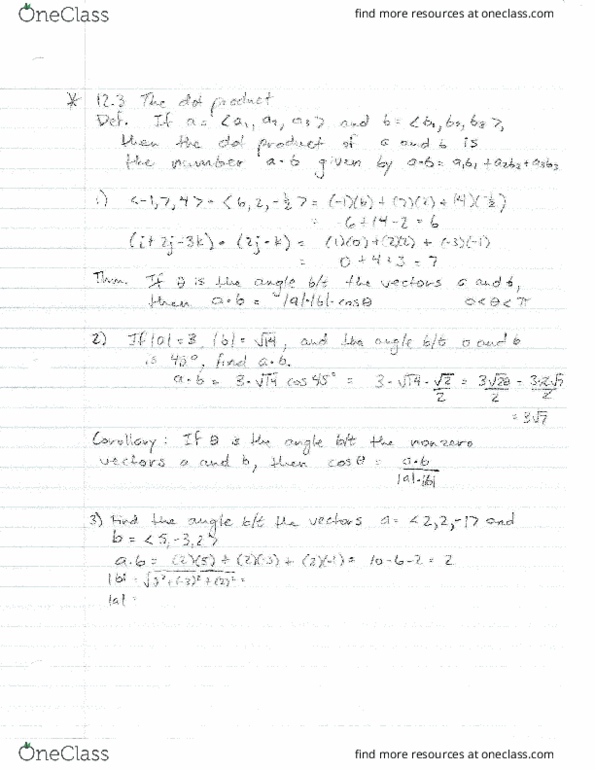 OneClass
find more resources at oneclass.com
* 12.3 The dot product
Def. If a = <a1, a2, a3> and b = <b1, b2, b3>,
then the dot product of a and b is
the number a·b given by a·b = a1b1 + a2b2 + a3b3
1) <-1,7,4> · <6,2,-½> = (-1)(6) + (7)(2) + (4)(-½)
= -6+14-2 = 6
(i+2j-3k) · (2j-k) = (1)(0)+(2)(2) + (-3)(-1)
= 0+4+3 = 7
Thm. If θ is the angle b/t the vectors a and b,
then a·b = |a|·|b|·cosθ 0<θ<π
2) If |a| = 3, |b| = √14, and the angle b/t a and b
is 45°, find a·b.
a·b = 3·√14 cos45° = 3·√14·√2/2 = 3√28/2 = 3·2√7/2
= 3√7
Corollary: If θ is the angle b/t the nonzero
vectors a and b, then cosθ = a·b/|a|·|b|
3) Find the angle b/t the vectors a = <2,2,-1> and
b = <5,-3,2>
a·b = (2)(5) + (2)(-3) + (2)(-1) = 10-6-2 = 2
|b| = √ +(-3)²+(2)² =
|a| =
OneClass
find more resources at oneclass.com